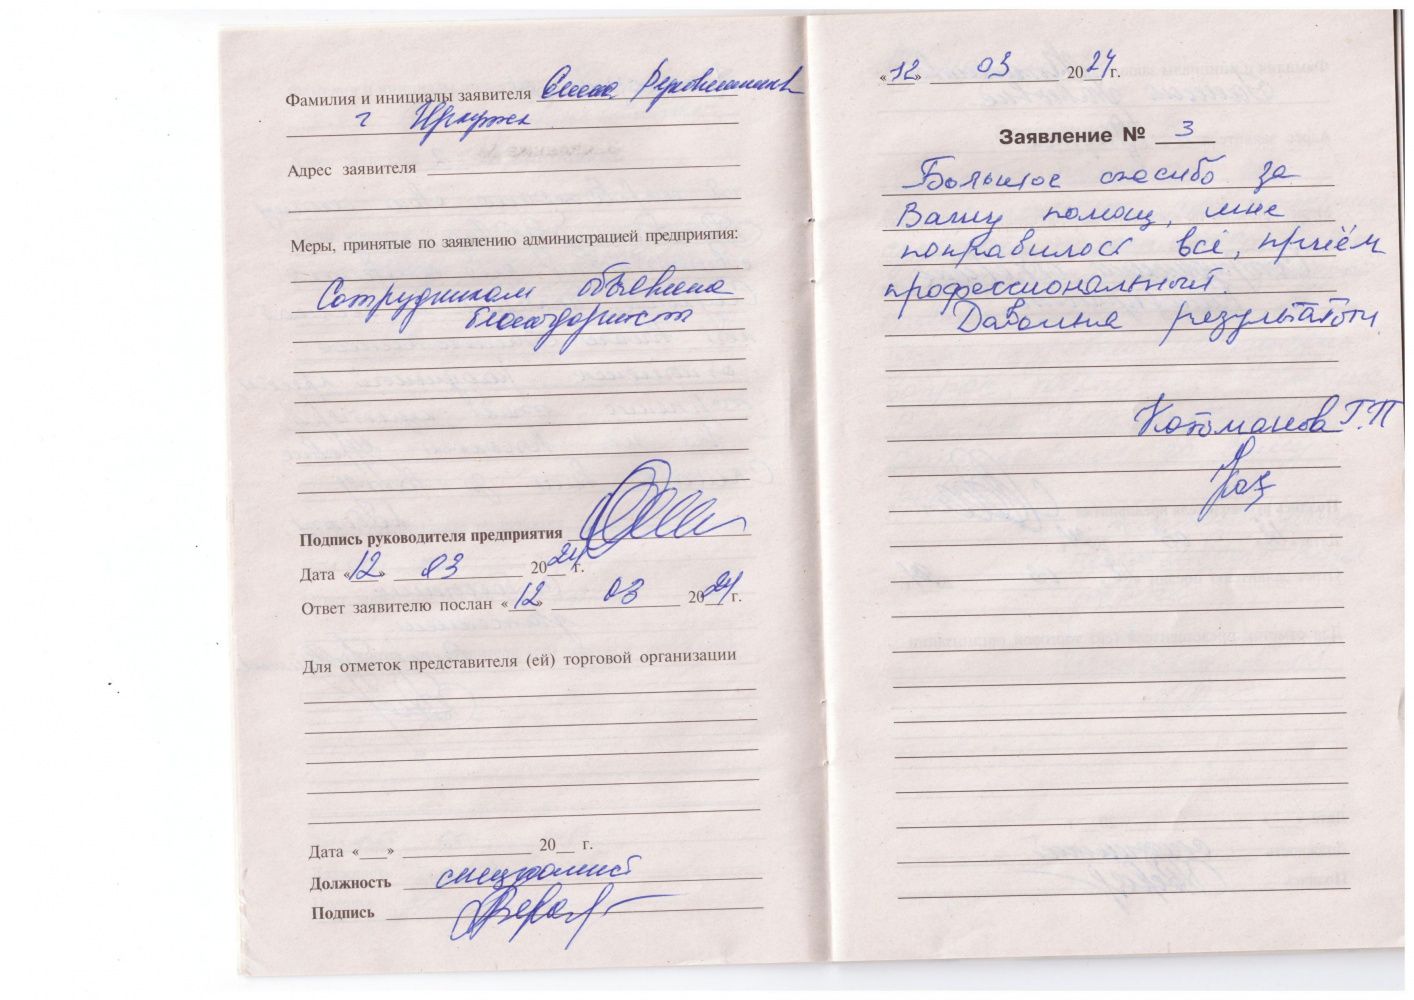 Фамилия и инициалы заявителя
г
Адрес заявителя
Меры, принятые по заявлению администрацией предприятия:
Сотрудникам объявлена
благодарность
Подпись руководителя предприятия
Дата «12» 03 2024 г.
Ответ заявителю послан «12» 03 2024 г.
Для отметок представителя (ей) торговой организации
Дата «___» ______ 20__ г.
Должность специалист
Подпись
«12» 03 2024 г.
Заявление № 3
Большое спасибо за
Вашу помощ, мне
понравилось всё, приём
профессиональный.
Довольна результатом
Котоманова Г.П